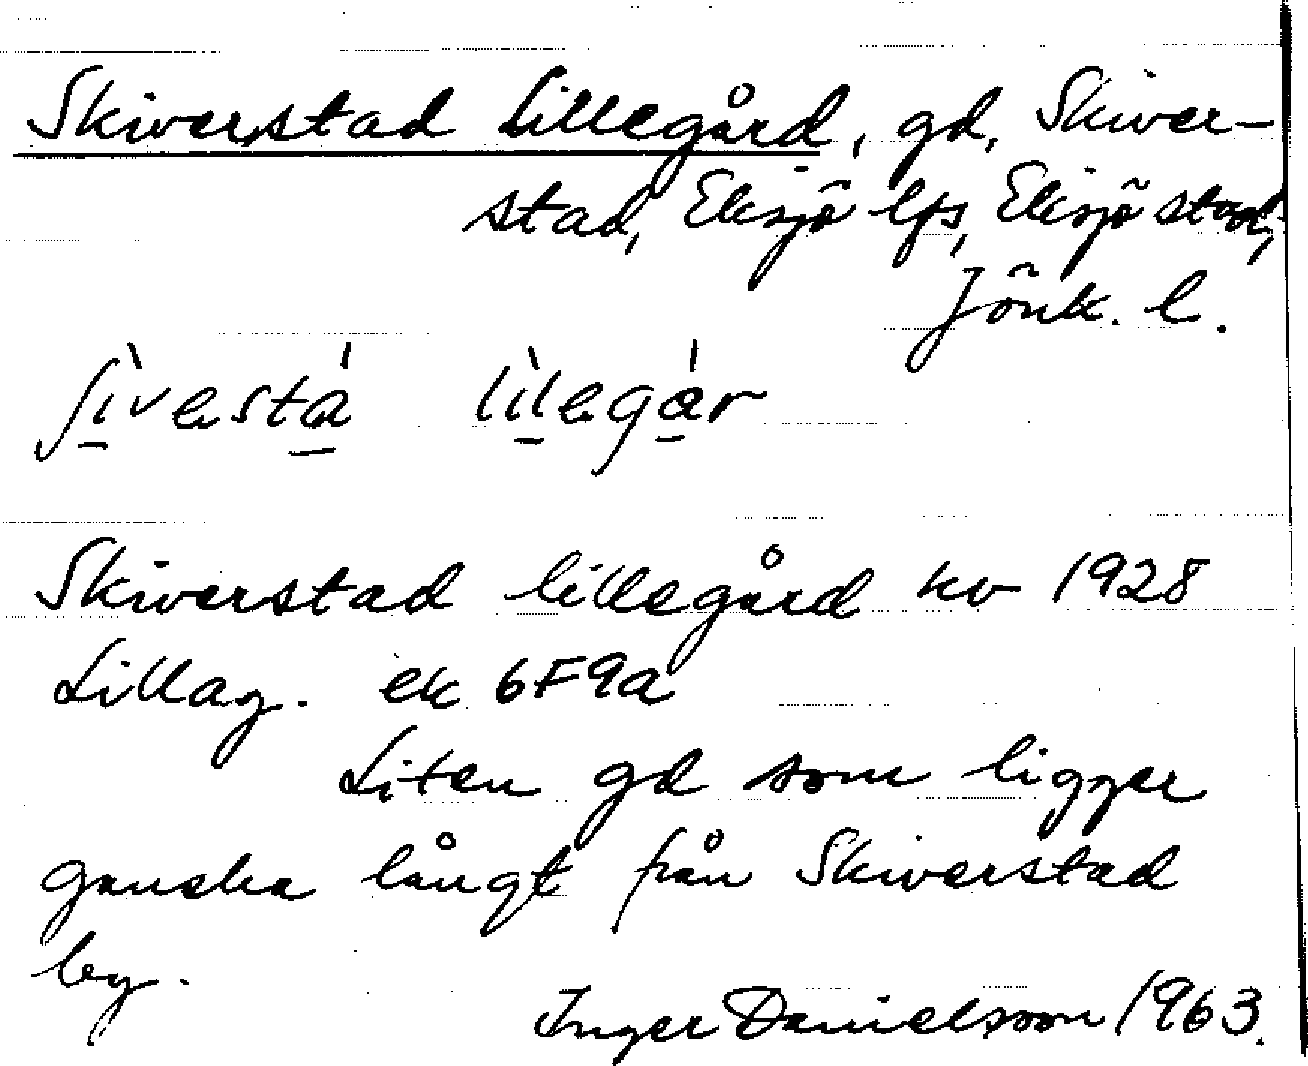 Skiverstad Lillegård, gd, Skiver-
stad, Eksjö lfs, Eksjö stad,
Jönk. l.
ʃìvestá lìlegár
Skiverstad lillegård hv 1928
Lillag. ek 6F9a
Liten gd som ligger
ganska långt från Skiverstad
by.
Inger Danielsson 1963.